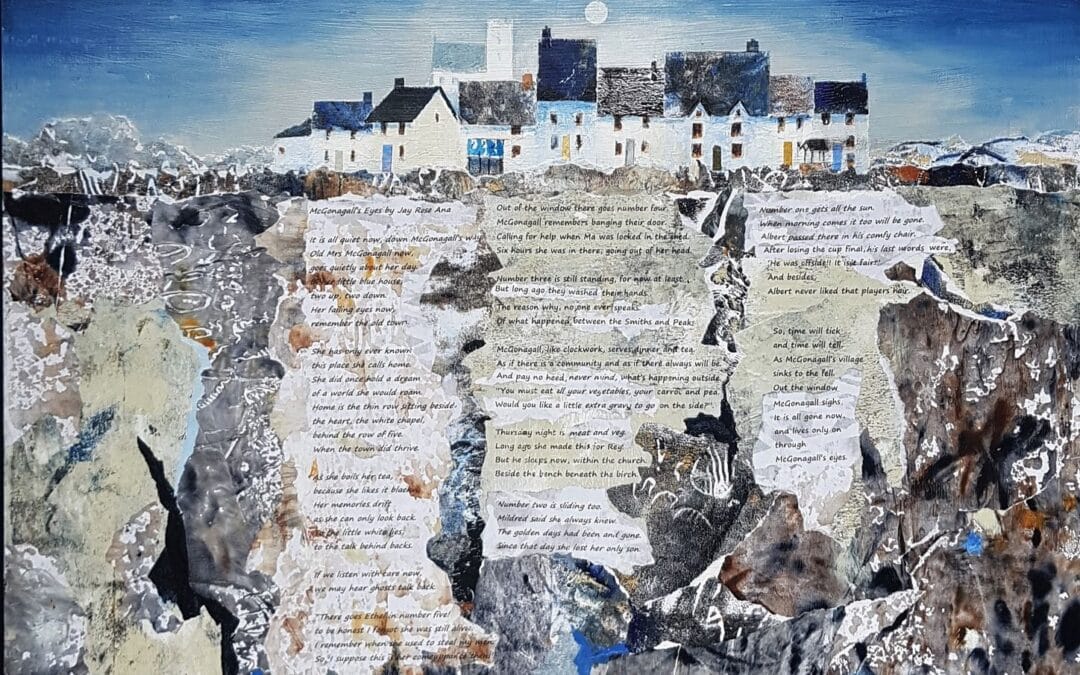 McGonagall's Eyes by Jay Rose Ana
It is all quiet now, down McGonagall's way.
Old Mrs McGonagall now,
goes quietly about her day.
little blue house,
two up, two down.
Her failing eyes now,
remember the old town.
She has only ever known
this place she calls home.
She did once hold a dream
of a world she would roam.
Home is the thin row sitting beside.
the heart, the white chapel,
behind the row of five.
When the town did thrive.
As she boils her tea,
because she likes it black,
Her memories drift
as she can only look back.
To the little white lies,
to the talk behind backs.
If we listen with care now,
we may hear ghosts talk back.
"There goes Ethel in number five!
to be honest I forgot she was still alive.
I remember when she used to steal my
So, I suppose this is her comeuppance then.
Out of the window there goes number four.
McGonagall remembers banging their door.
Calling for help when Ma was locked in the shed.
Six hours she was in there, going out of her head.
Number three is still standing, for now at least.
But long ago they washed their hands.
The reason why, no one ever speaks.
Of what happened between the Smiths and Peaks.
McGonagall, like clockwork, serves dinner and tea.
As if there is a community and as if there always will be.
And pay no heed, never mind, what's happening outside.
"You must eat all your vegetables, your carrot and pea.
Would you like a little extra gravy to go on the side?"
Thursday night is meat and veg.
Long ago she made this for Reg.
But he sleeps now, within the church.
Beside the bench beneath the birch.
Number two is sliding too.
Mildred said she always knew.
The golden days had been and gone.
Since that day she lost her only son.
Number one gets all the sun.
When morning comes it too will be gone.
Albert passed there in his comfy chair.
After losing the cup final, his last words were,
"He was offside!! It isn't fair!"
And besides,
Albert never liked that players hair.
So, time will tick
and time will tell.
As McGonagall's village
sinks to the fell.
Out the window
McGonagall sighs.
It is all gone now,
and lives only on
through
McGonagall's eyes.